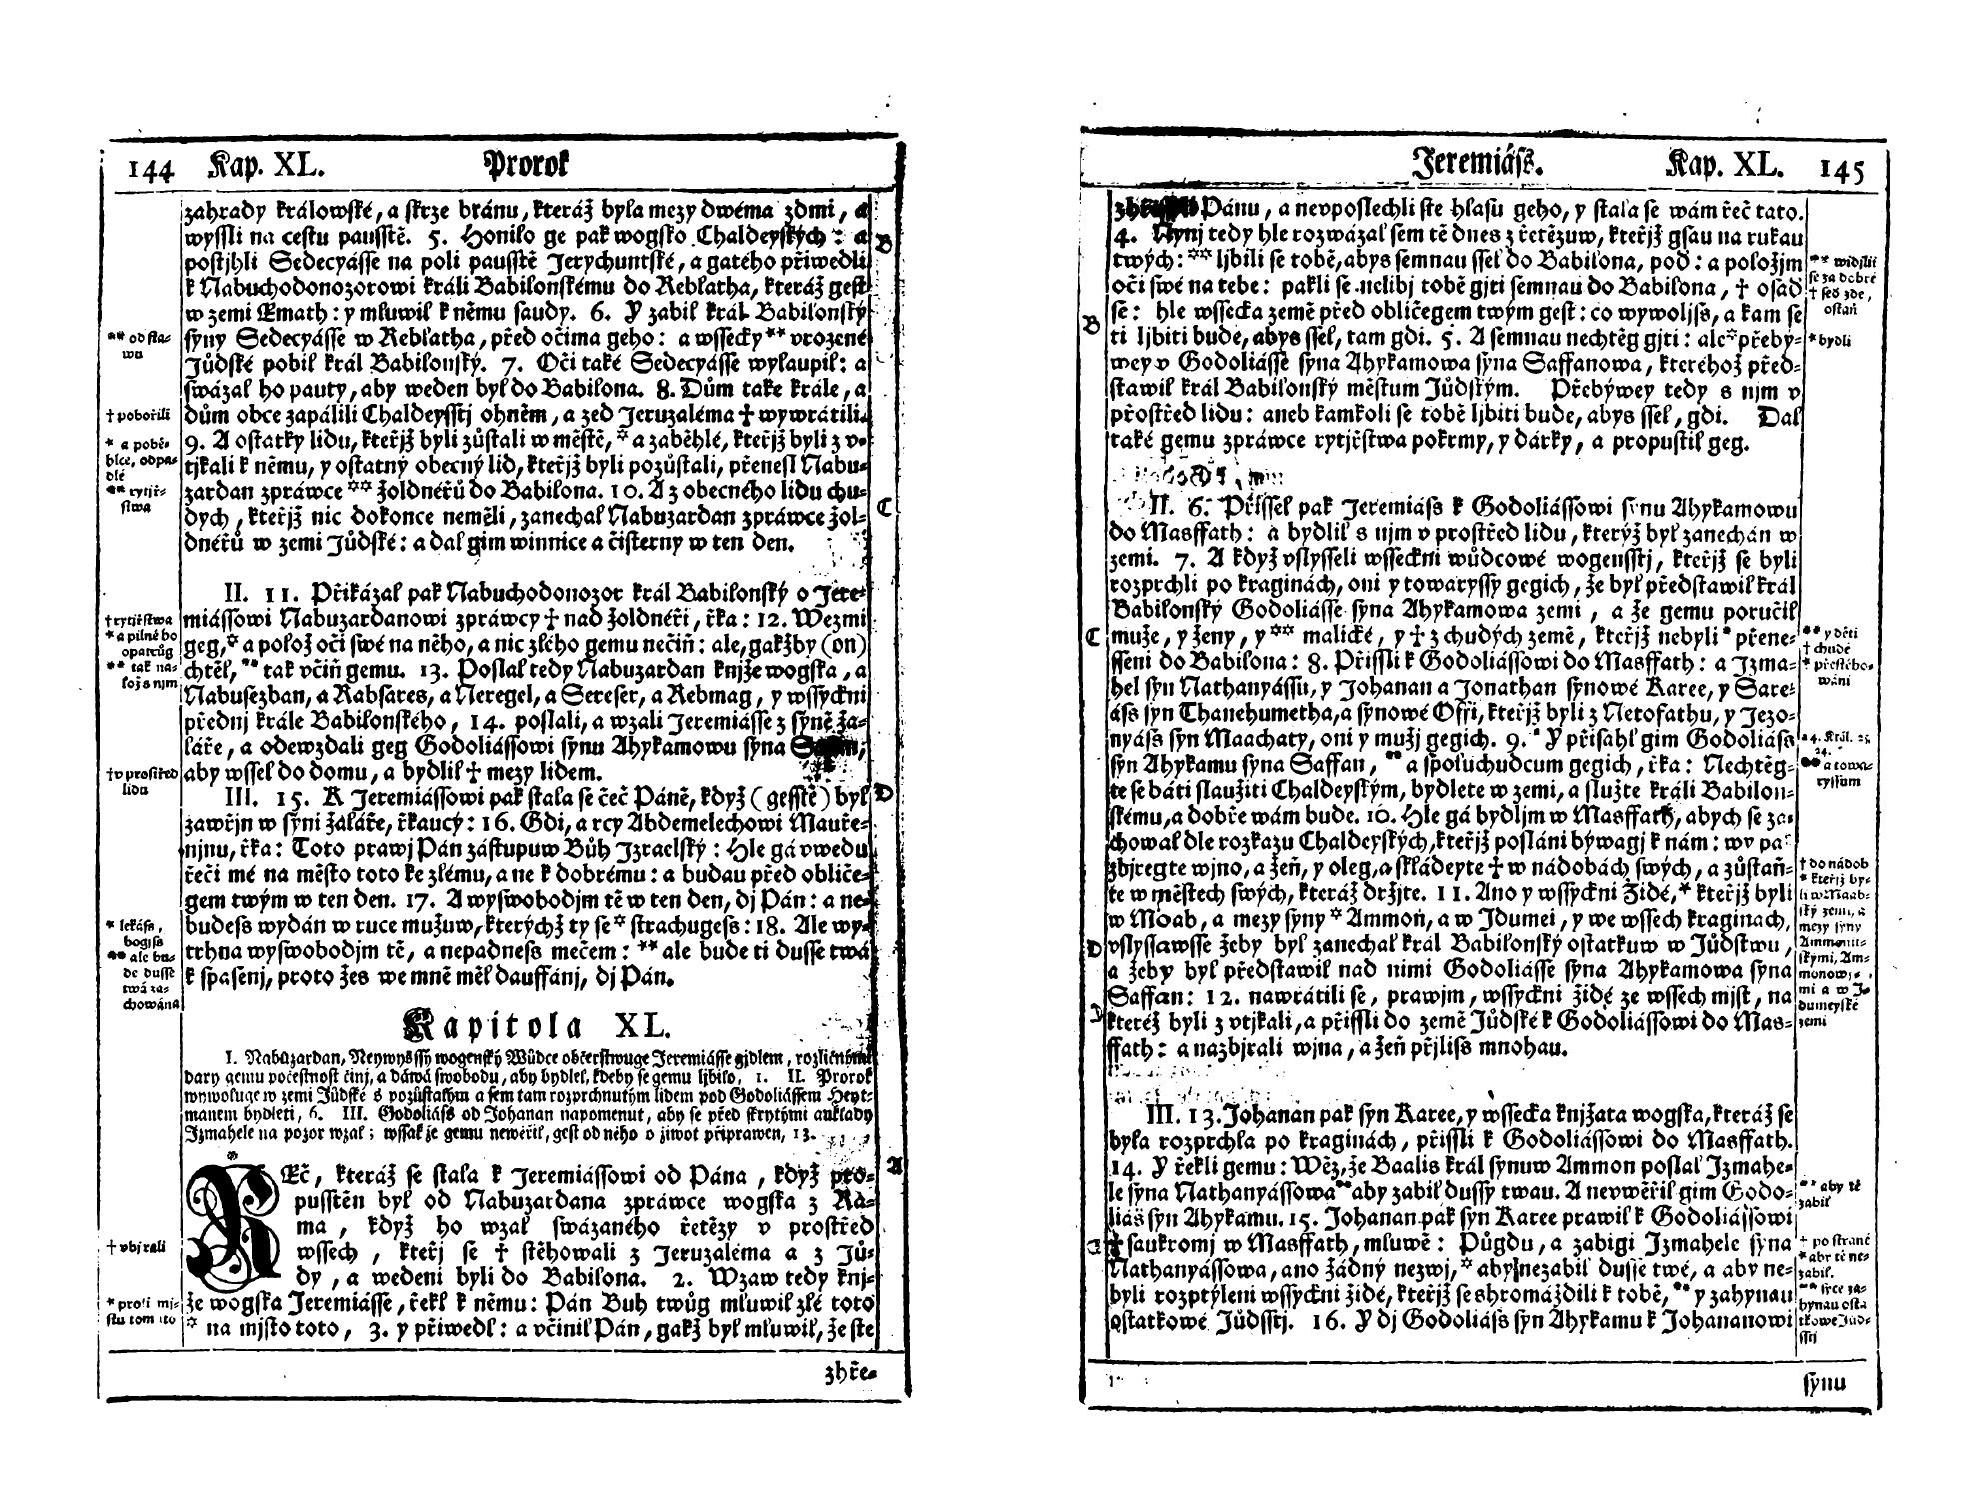 144 Kap. XL. Prorok
zahrady králowſké, a ſkrze bránu, kteráž byla mezy dwéma zdmi, a
wyſſli na ceſtu pauſſtě. 5. Honilo ge pak wogſko Chaldeyſkých: a
poſtjhli Sedecyáſſe na poli pauſſtě Jerychuntſké, a gatého přiwedli
k Nabuchodonozorowi králi Babilonſkému do Reblatha, kteráž geſt
w zemi Emath: y mluwil k němu ſaudy. 6. Y zabil král Babilonſký
ſyny Sedecyáſſe w Reblatha, před očima geho: a wſſecky ** vrozené
Jůdſké pobil král Babilonſký. 7. Oči také Sedecyáſſe wylaupil: a
ſwázal ho pauty, aby weden byl do Babilona. 8. Dům take krále, a
dům obce zapálili Chaldeyſſtj ohněm, a zed Jeruzaléma † wywrátili.
9. A oſtatky lidu, kteřjž byli zůſtali w měſtě, * a zaběhlé, kteřjž byli z v-
tjkali k němu, y oſtatný obecný lid, kteřjž byli pozůſtali, přeneſl Nabu-
zardan zpráwce ** žoldnéřů do Babilona. 10. A z obecného lidu chu-
dych, kteřjž nic dokonce neměli, zanechal Nabuzardan zpráwce žol-
dnéřů w zemi Jůdſké: a dal gim winnice a čiſterny w ten den.
II. 11. Přikázal pak Nabuchodonozor král Babilonſký o Jere-
miáſſowi Nabuzardanowi zpráwcy † nad žoldnéři, řka: 12. Wezmi
geg, * a polož oči ſwé na něho, a nic zlého gemu nečiň: ale, gakžby (on)
chtěl, ** tak včiň gemu. 13. Poſlal tedy Nabuzardan knjže wogſka, a
Nabuſezban, a Rabſares, a Neregel, a Sereſer, a Rebmag, y wſſyckni
přednj krále Babilonſkého, 14. poſlali, a wzali Jeremiáſſe z ſyně ža-
láře, a odewzdali geg Godoliáſſowi ſynu Ahykamowu ſyna
aby wſſel do domu, a bydlil † mezy lidem.
III. 15. K Jeremiáſſowi pak ſtala ſe čeč Páně, když (geſſtě) byl
zawřjn w ſyni žaláře, řkaucý: 16. Gdi, a rcy Abdemelechowi Mauře-
njnu, řka: Toto prawj Pán záſtupuw Bůh Jzraelſký: Hle gá vwedu
řeči mé na měſto toto ke zlému, a ne k dobrému: a budau před obliče-
gem twým w ten den. 17. A wyſwobodjm tě w ten den, dj Pán: a ne-
budeſs wydán w ruce mužuw, kterýchž ty ſe * ſtrachugeſs: 18. Ale wy-
trhna wyſwobodjm tě, a nepadneſs mečem: ** ale bude ti duſſe twá
k ſpaſenj, proto žes we mně měl dauffánj, dj Pán.
** od ſta-
wu
† pobořili
* a pobě-
hlce, odpa-
dlé
** rytjř-
ſtwa
† rytjřſtwa
* a pilně ho
opatrůg
** tak na-
lož s njm
† v proſtřed
lidu
* lekáſs,
bogjſs
** ale bu-
de duſſe
twá za-
chowána
B
C
D
Kapitola XL.
I. Nabuzardan, Neywyſſſý wogenſký Wůdce obřerſtwuge Jeremiáſſe gjdlem, rozličnými
dary gemu počeſtnoſt činj, a dáwá ſwobodu, aby bydlel, kdeby ſe gemu ljbilo, 1. II. Prorok
wywoluge w zemi Jůdſké s pozůſtalým a ſem tam rozprchnutým lidem pod Godoliáſſem Heyt-
manem bydleti, 6. III. Godoliáſs od Johanan napomenut, aby ſe před ſkrytými auklady
Jzmahele na pozor wzal; wſſak že gemu newěřil, geſt od něho o žiwot připrawen, 13.
A
ŘEč, kteráž ſe ſtala k Jeremiáſſowi od Pána, když pro-
puſſtěn byl od Nabuzardana zpráwce wogſka z Ra-
ma, když ho wzal ſwázaného řetězy v proſtřed
wſſech, kteřj ſe † ſtěhowali z Jeruzaléma a z Jů-
dy, a wedeni byli do Babilona. 2. Wzaw tedy knj-
že wogſka Jeremiáſſe, řekl k němu: Pán Buh twůg mluwil zlé toto
* na mjſto toto, 3. y přiwedl: a včinil Pán, gakž byl mluwil, že ſte
† vbjrali
* proti mj-
ſtu tomuto
zhře-
Jeremiáſs. Kap. XL. 145
Pánu, a nevpoſlechli ſte hlaſu geho, y ſtala ſe wám řeč tato.
4. Nynj tedy hle rozwázal ſem tě dnes z řetězuw, kteřjž gſau na rukau
twých: ** ljbili ſe tobě, abys ſemnau ſſel do Babilona, pod: a položjm
oči ſwé na tebe: pakli ſe nelibj tobě gjti ſemnau do Babilona, † oſad
ſe: hle wſſecka země před obličegem twým geſt: co wywoljſs, a kam ſe
ti ljbiti bude, abys ſſel, tam gdi. 5. A ſemnau nechtěg gjti: ale * přeby-
wey v Godoliáſſe ſyna Ahykamowa ſyna Saffanowa, kteréhož před-
ſtawil král Babilonſký měſtum Jůdſkým. Přebýwey tedy s njm v
proſtřed lidu: aneb kamkoli ſe tobě ljbiti bude, abys ſſel, gdi. Dal
také gemu zpráwce rytjřſtwa pokrmy, y dárky, a propuſtil geg.
II. 6. Přiſſel pak Jeremiáſs k Godoliáſſowi ſynu Ahykamowu
do Maſffath: a bydlil s njm v proſtřed lidu, kterýž byl zanechán w
zemi. 7. A když vſlyſſeli wſſeckni wůdcowé wogenſſtj, kteřjž ſe byli
rozprchli po kraginách, oni y towaryſſy gegich, že byl předſtawil král
Babilonſký Godoliáſſe ſyna Ahykamowa zemi, a že gemu poručil
muže, y ženy, y ** malické, y † z chudých země, kteřjž nebyli * přene-
ſſeni do Babilona: 8. Přiſſli k Godoliáſſowi do Maſffath: a Jzma-
hel ſyn Nathanyáſſu, y Johanan a Jonathan ſynowé Karee, y Sare-
áſs ſyn Thanehumetha, a ſynowé Offi, kteřjž byli z Netofathu, y Jezo-
nyáſs ſyn Maachaty, oni y mužj gegich. 9. * Y přiſahl gim Godoliáſs
ſyn Ahykamu ſyna Saffan, ** a ſpoluchudcum gegich, řka: Nechtěg-
te ſe báti ſlaužiti Chaldeyſkým, bydlete w zemi, a ſlužte králi Babilon-
ſkému, a dobře wám bude. 10. Hle gá bydljm w Maſffath, abych ſe za-
chowal dle rozkazu Chaldeyſkých, kteřjž poſláni býwagj k nám: wy pa
zbjregte wjno, a žeň, y oleg, a ſkládeyte † w nádobách ſwých, a zůſtaň-
te w měſtech ſwých, kteráž držjte. 11. Ano y wſſyckni Židé, * kteřjž byli
w Moab, a mezy ſyny * Ammon, a w Jdumei, y we wſſech kraginach,
vſlyſſawſſe žeby byl zanechal král Babilonſký oſtatkuw w Jůdſtwu,
a žeby byl předſtawil nad nimi Godoliáſſe ſyna Ahykamowa ſyna
Saffan: 12. nawrátili ſe, prawjm, wſſyckni židé ze wſſech mjſt, na
kteréž byli z vtjkali, a přiſſli do země Jůdſké k Godoliáſſowi do Maſ-
ffath: a nazbjrali wjna, a žeň přjliſs mnohau.
III. 13. Johanan pak ſyn Karee, y wſſecka knjžata wogſka, kteráž ſe
byla rozprchla po kraginách, přiſſli k Godoliáſſowi do Maſffath.
14. Y řekli gemu: Wěz, že Baalis král ſynuw Ammon poſlal Jzmahe-
le ſyna Nathanyáſſowa ** aby zabil duſſy twau. A nevwěřil gim Godo-
liáſs ſyn Ahykamu. 15. Johanan pak ſyn Karee prawil k Godoliáſſowi
† ſaukromj w Maſffath, mluwě: Půgdu, a zabigi Jzmahele ſyna
Nathanyáſſowa, ano žádný nezwj, * aby nezabil duſſe twé, a aby ne-
byli rozptýleni wſſyckni židé, kteřjž ſe ſhromáždili k tobě, ** y zahynau
oſtatkowé Jůdſſtj. 16. Y dj Godoliáſs ſyn Ahykamu k Johananowi
** widjſli
ſe za dobré
† ſed zde,
oſtaň
* bydli
** y děti
† chudé
* přeſtěho-
wáni
* 4. Král. 25.
24.
** a towa-
ryſſum
† do nádob
* kteřjž by-
li w Moab-
ſký zemi, a
mezy ſyny
Ammonit-
ſkými, Am-
monowý-
mi a w J-
dumeyſké
zemi
** aby tě
zabil
† po ſtraně
* aby tě ne-
zabil.
** ſyce za-
hynau oſta
tkowé Jůd-
ſſtj
B
C
D
ſynu